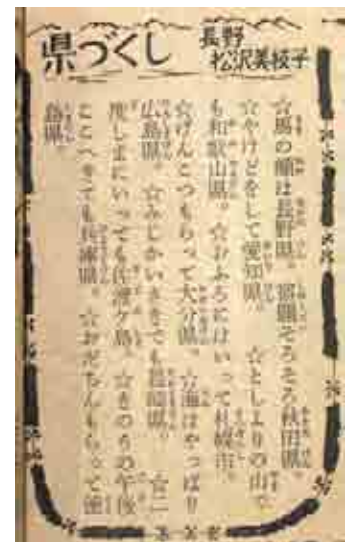 県づくし
長野
松沢美枝子
☆馬の顔は長野県。 宿題そろそろ秋田県。
☆やけどをして愛知県。 ☆としよりの山で
も和歌山県。 ☆おふろにはいって札幌市。
☆げんこつもらって大分県。 ☆海はやっぱり
広島県。 ☆みじかいさきでも長崎県。 ☆二
度しまにいっても佐渡ケ島。 ☆きのうの午後
ここへきても兵庫県。 ☆おだちんもらって徳
島県。